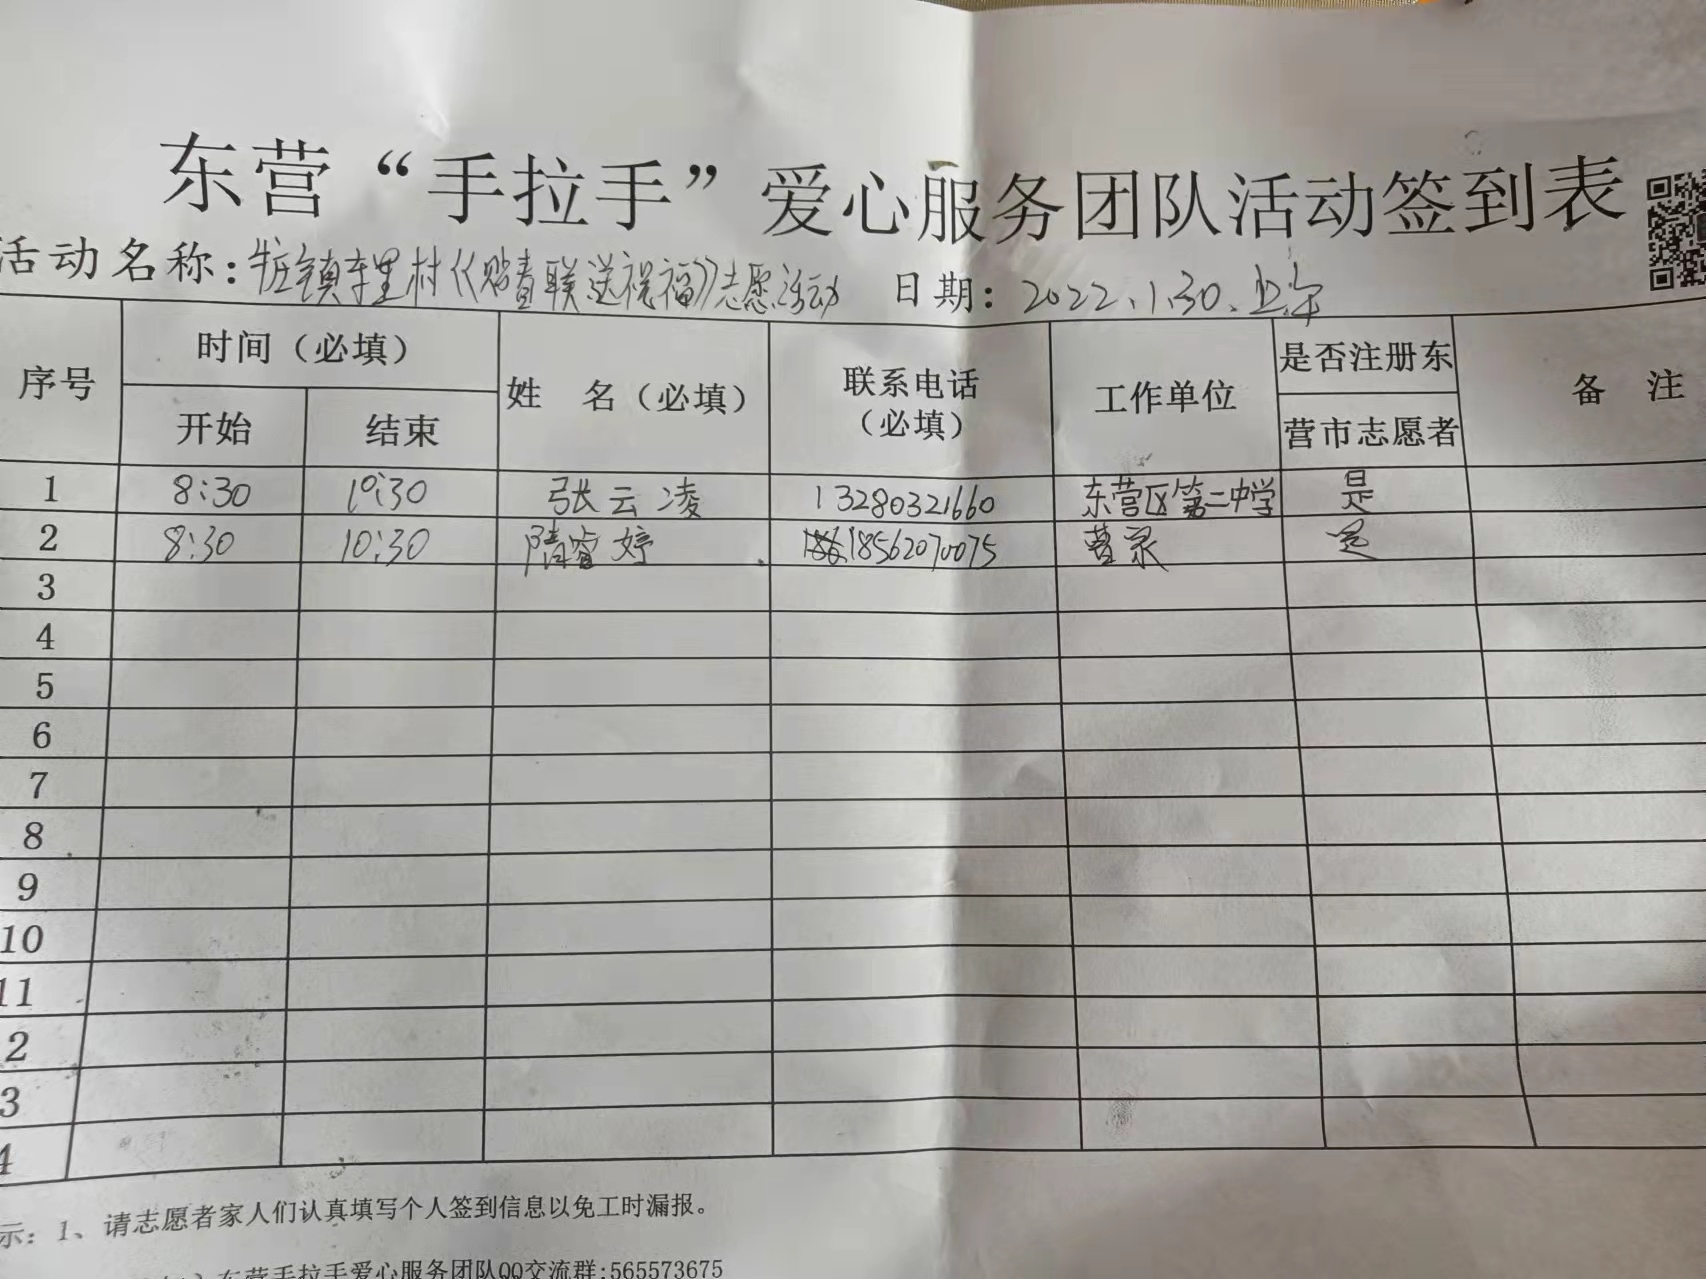 东营“手拉手”爱心服务团队活动签到表
活动名称：牛庄镇车里村《贴春联送祝福》志愿活动 日期：2022.1.30.上午
序号 时间（必填） 开始 结束 姓 名（必填） 联系电话（必填） 工作单位 是否注册东营市志愿者 备 注
1 8:30 10:30 张云凌 13280321660 东营区第二中学 是
2 8:30 10:30 隋睿婷 18562070075 是
3
4
5
6
7
8
9
10
11
2
3
4
示：1、请志愿者家人们认真填写个人签到信息以免工时漏报。
东营手拉手爱心服务团队QQ交流群:565573675